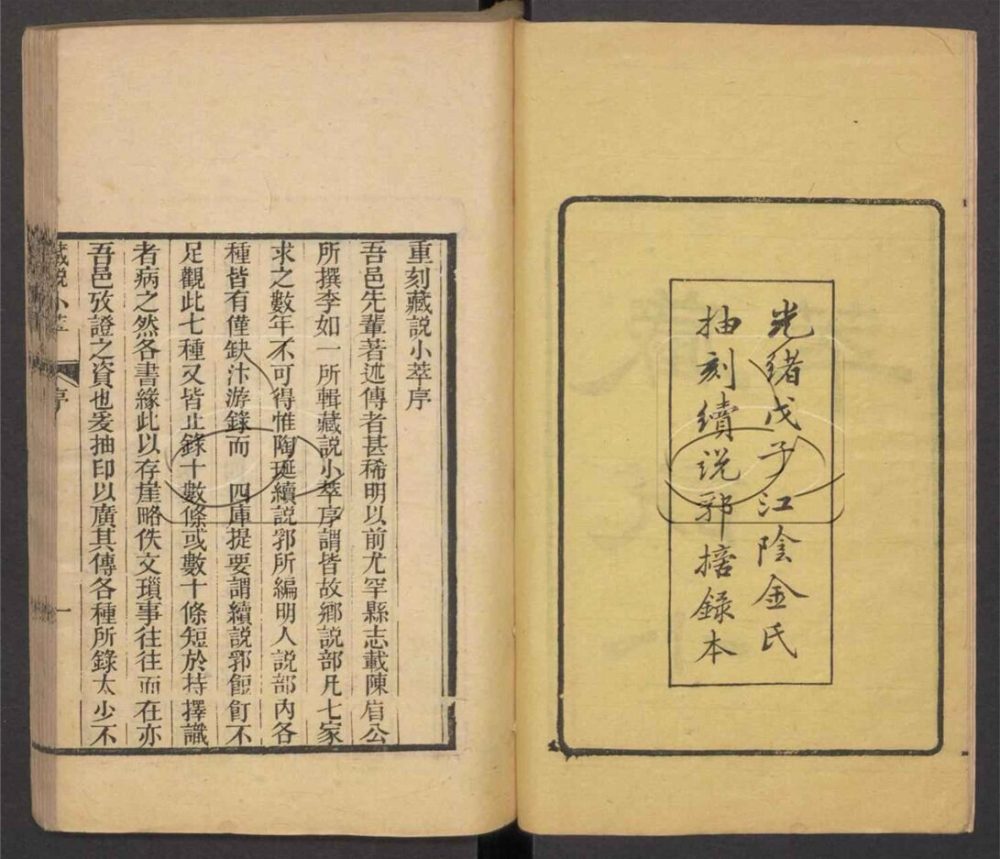 光緒戊子江陰金氏
抽刻續説郛摿録本
重刻藏說小萃序
吾邑先輩著述傳者甚稀明以前尤罕縣志載陳眉公
所撰李如一所輯藏說小萃序謂皆故鄉說部凡七家
求之數年不可得惟陶珽續說郛所編明人說部內各
種皆有僅缺汴游錄而　四庫提要謂續說郛飽飣不
足觀此七種又皆止錄十數條或數十條短於持擇識
者病之然各書緣此以存崖略佚文瑣事往往而在亦
吾邑攷證之資也爰抽印以廣其傳各種所錄太少不
藏說小萃　序　一